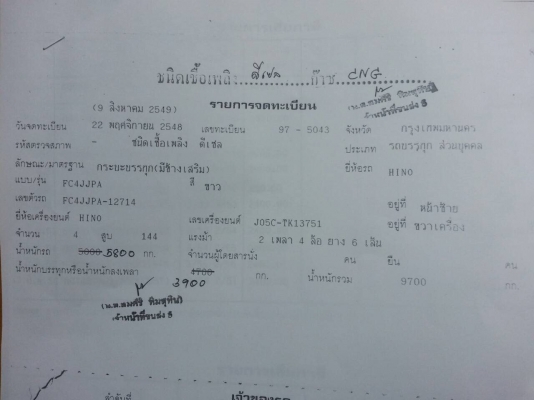 ชนิดเชื้อเพลิง ดีเซล ก๊าซ CNG
(9 สิงหาคม 2549) รายการจดทะเบียน
(น.ส.สมศรี พิมสุทิน)
เจ้าหน้าที่ขนส่ง 5
วันจดทะเบียน 22 พฤศจิกายน 2548 เลขทะเบียน 97 - 5043 จังหวัด กรุงเทพมหานคร
รหัสตรวจสภาพ - ชนิดเชื้อเพลิง ดีเซล ประเภท รถบรรทุก ส่วนบุคคล
ลักษณะ/มาตรฐาน กระบะบรรทุก(มีข้างเสริม) ยี่ห้อรถ HINO
แบบ/รุ่น FC4JJPA สี ขาว
เลขตัวรถ FC4JJPA-12714 อยู่ที่ หน้าซ้าย
ยี่ห้อเครื่องยนต์ HINO เลขเครื่องยนต์ J05C-TK13751 อยู่ที่ ขวาเครื่อง
จำนวน 4 สูบ 144 แรงม้า 2 เพลา 4 ล้อ ยาง 6 เส้น
น้ำหนักรถ 5000 5800 กก. จำนวนผู้โดยสารนั่ง คน ยืน คน
น้ำหนักบรรทุกหรือน้ำหนักลงเพลา 4700 กก. น้ำหนักรวม 9700 กก.
3900
(น.ส.สมศรี พิมสุทิน)
เจ้าหน้าที่ขนส่ง 5
ลำดับที่ เจ้าของรถ